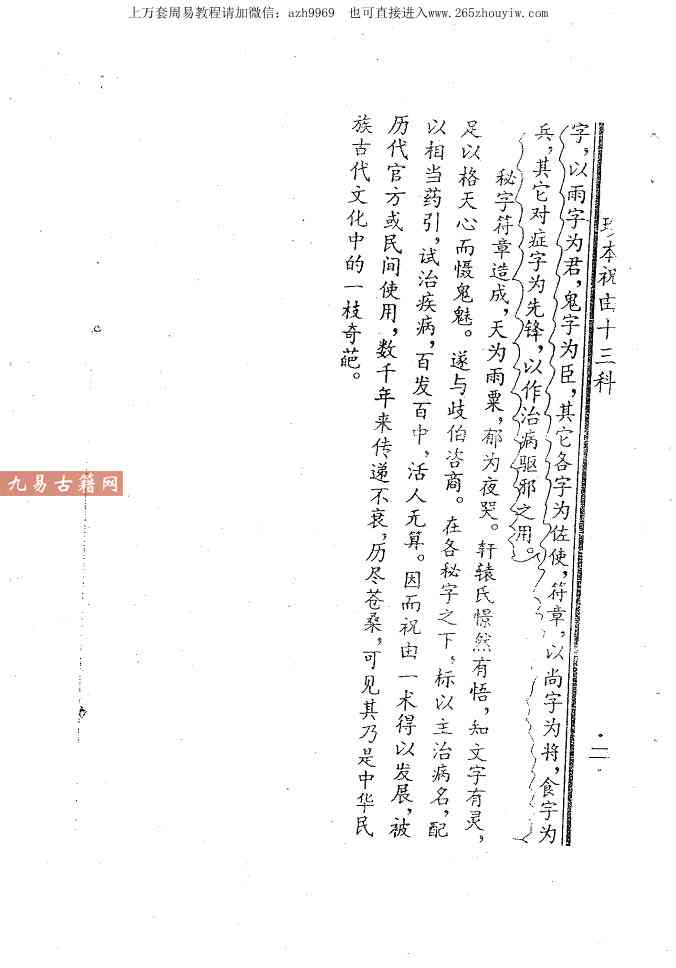 上万套周易教程请加微信：azh9969 也可直接进入www.265zhouyiw.com
珍本祝由十三科
·二·
字，以雨字为君，鬼字为臣，其它各字为佐使，符章，以尚字为将，食字为
兵，其它对症字为先锋，以作治病驱邪之用。
秘字符章造成，天为雨粟，郁为夜哭。轩辕氏憬然有悟，知文字有灵，
足以格天心而慑鬼魅。遂与歧伯咨商。在各秘字之下，标以主治病名，配
以相当药引，试治疾病，百发百中，活人无算。因而祝由一术得以发展，被
历代官方或民间使用，数千年来传递不衰，历尽苍桑，可见其乃是中华民
族古代文化中的一枝奇葩。
九易古籍网